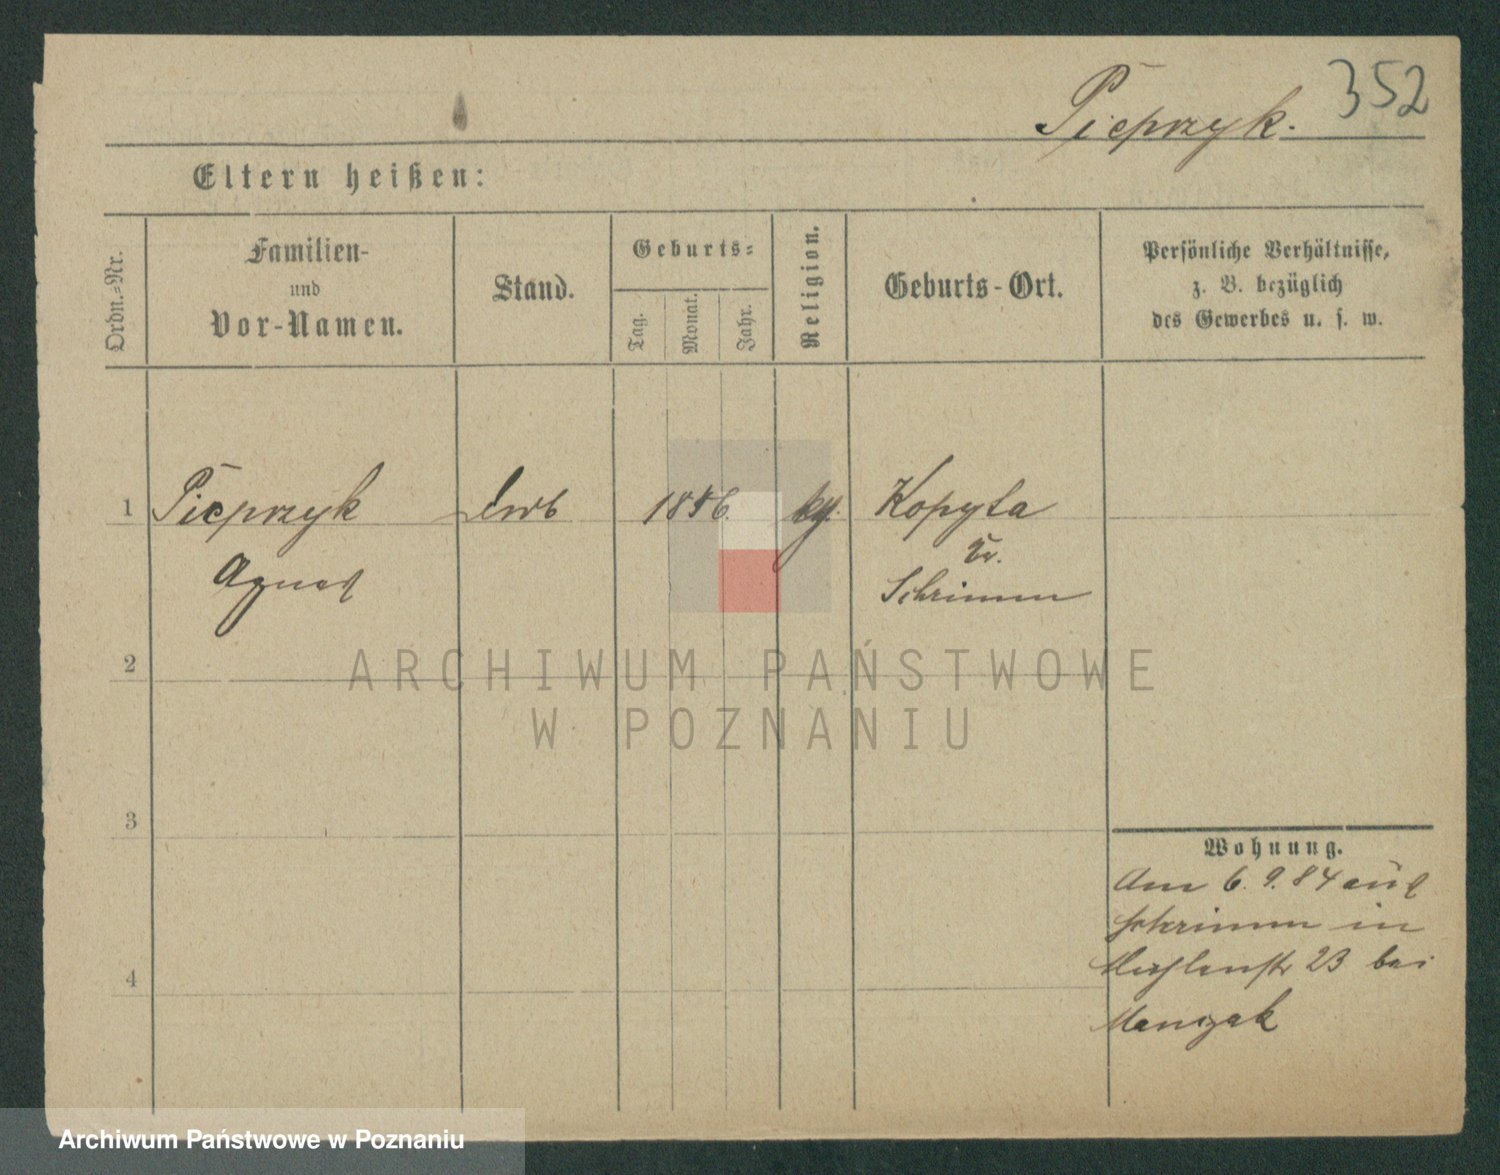 352
Pieprzyk.
Eltern heißen:
Ordn.-Nr.
Familien-
und
Vor-Namen.
Stand.
Geburts-
Tag.
Monat.
Jahr.
Religion.
Geburts-Ort.
Persönliche Verhältnisse,
z. B. bezüglich
des Gewerbes u. s. w.
1 Pieprzyk 1856. Kopyta
Agnes Kr.
Schrimm
2
3
4
Wohnung.
Am 6.9.84 aus
Schrimm in
23 bei
Manczak
ARCHIWUM PAŃSTWOWE
W POZNANIU
Archiwum Państwowe w Poznaniu